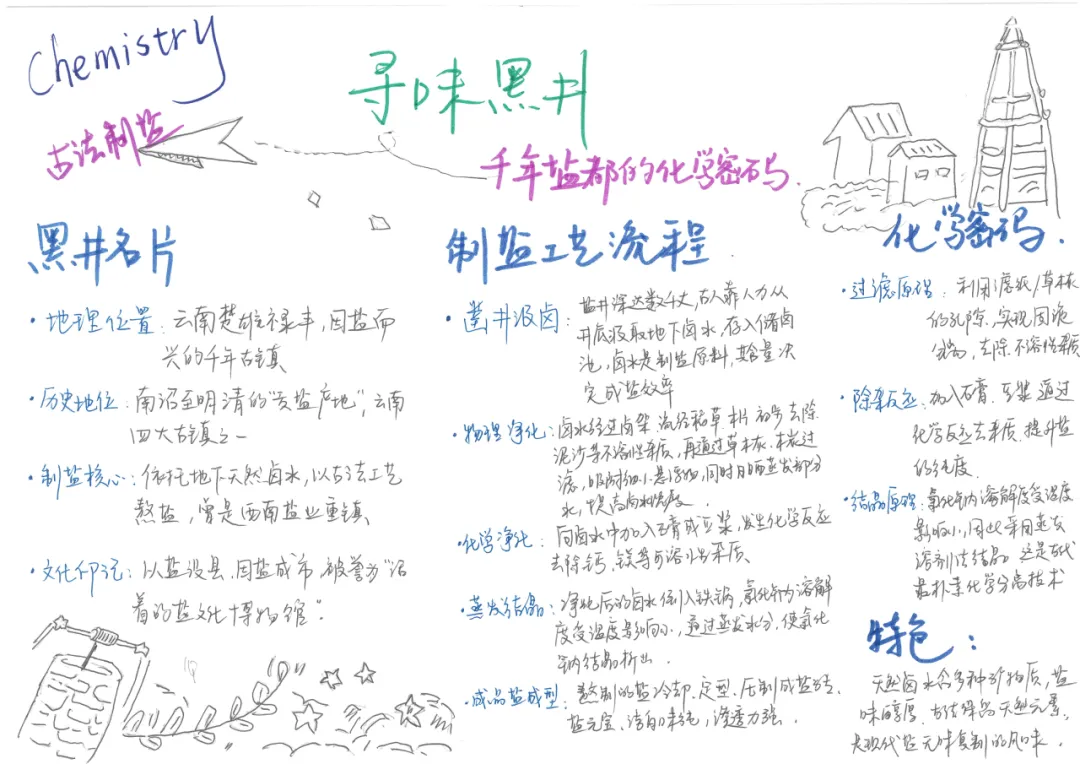 Chemistry
寻味黑井
古法制盐
千年盐都的化学密码.
黑井名片
·地理位置:云南楚雄禄丰,因盐而
兴的千年古镇
·历史地位:南诏至明清的"贡盐产地",云南
四大古镇之一
·制盐核心:依托地下天然卤水,以古法工艺
熬盐,曾是西南盐业重镇
·文化印记:以盐设县,因盐成市,被誉为"活
着的盐文化博物馆".
制盐工艺流程.
·凿井汲卤:盐井深达数千丈,古人靠人力从
井底汲取地下卤水,存入储卤
池,卤水是制盐原料,其含量决
定成盐效率
·物理净化:卤水经过卤架 流经稻草.木片 初步去除
泥沙等不溶性杂质,再通过草木灰、木炭过
滤,吸附细小悬浮物,同时日晒蒸发部分
水,提高卤水浓度.
·化学净化:向卤水中加入石膏或豆浆,发生化学反应
去除钙,镁等可溶性杂质
·蒸发结晶:净化后的卤水倒入铁锅,氯化钠溶解
度受温度影响小,通过蒸发水分,使氯化
钠结晶析出.
·成品盐成型:熬制的盐冷却.定型.压制成盐砖、
盐元宝、洁白味纯,渗透力强.
化学密码.
·过滤原理:利用滤纸/草木灰
的孔隙,实现固液
分离,去除不溶性杂质
·除杂反应:加入石膏.豆浆 通过
化学反应去杂质.提升盐
的纯度.
·结晶原理:氯化钠溶解度受温度
影响小,因此采用蒸发
溶剂法结晶 这是古代
最朴素化学分离技术
特色:
天然卤水含多种矿物质,盐
味醇厚.古法保留天然元素,
是现代盐无味复制的风味.